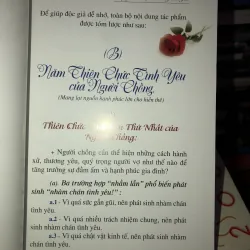 Để giúp độc giả dễ nhớ, toàn bộ nội dung tác phẩm
được tóm lược như sau:
(B)
Năm Thiên Chức Tình Yêu
của Người Chồng.
(Mang lại nguồn hạnh phúc lớn cho hiền thê)
1
Thiên Chức Thứ Nhất của
Chồng:
+ Người chồng cần thể hiện những cách hành
xử, thương yêu, quý trọng người vợ như thế nào để
tăng trưởng sự đầm ấm và hạnh phúc gia đình?
(a). Ba trường hợp “nhầm lẫn” phổ biến phát
sinh “nhàm chán tình yêu!” :
a.1 - Vì quá sức gần gũi, nên phát sinh nhàm chán
tình yêu.
a.2 - Vì quá nhiều trách nhiệm chung, nên phát
sinh nhàm chán tình yêu.
a.3 - Vì quá chật vật kinh tế, nên phát sinh nhàm
chán tình yêu.